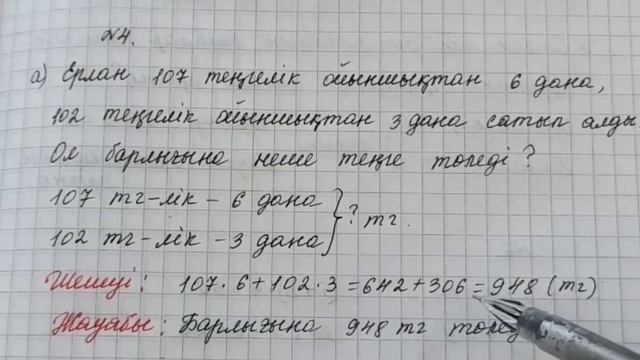 №4.
а) Ерлан 107 теңгелік ойыншықтан 6 дана,
102 теңгелік ойыншықтан 3 дана сатып алды
Ол барлығына неше теңге төледі?
107 тг-лік - 6 дана
102 тг-лік - 3 дана } ? тг.
Шешуі: 107·6+102·3=642+306=948 (тг)
Жауабы: Барлығына 948 тг